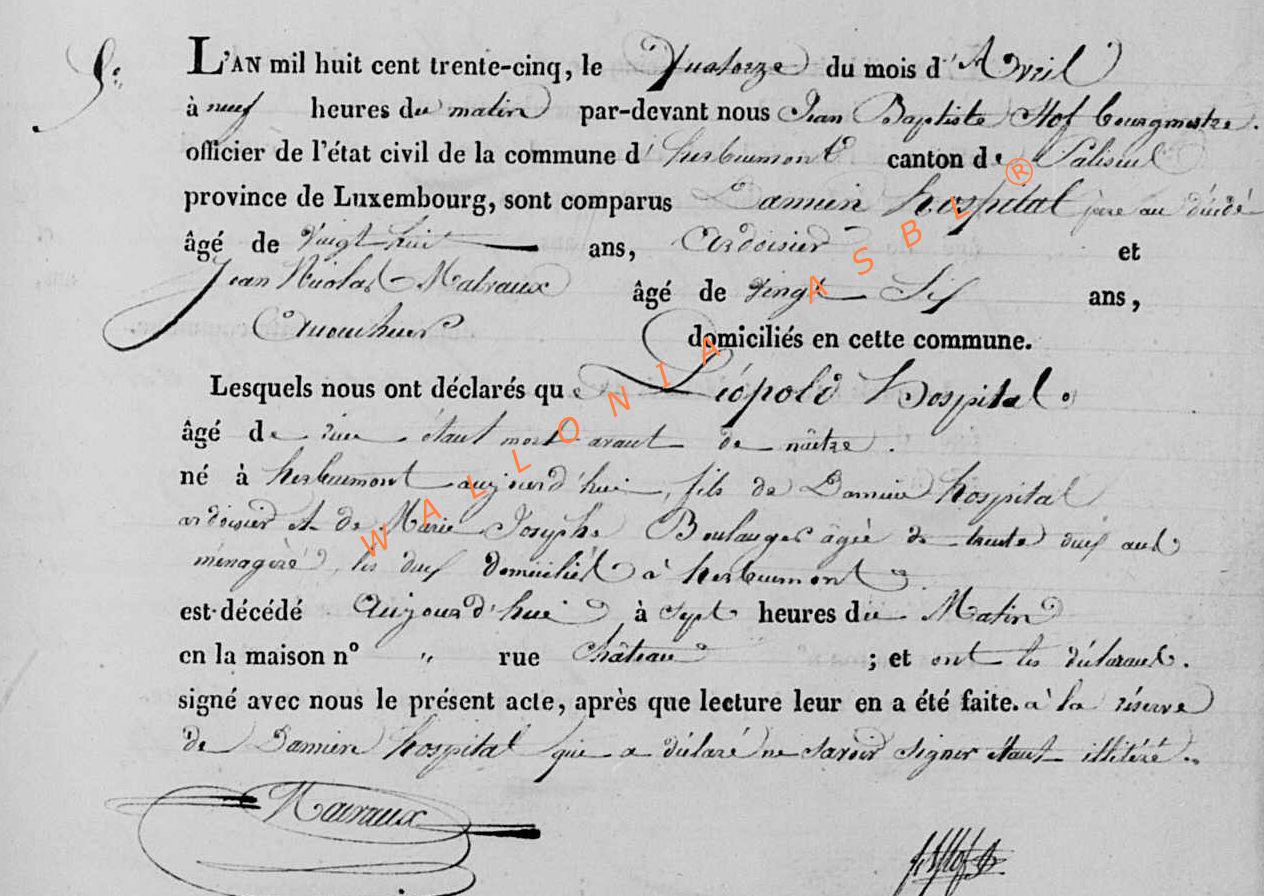 5e
L'AN mil huit cent trente-cinq, le Quatorze du mois d'Avril
à neuf heures du matin par-devant nous Jean Baptiste Hof bourgmestre.
officier de l'état civil de la commune d'herbeumont canton de Paliseul
province de Luxembourg, sont comparus Damien hospital père au décédé
âgé de vingt huit ans, Ardoisier et
Jean Nicolas Malvaux âgé de vingt Six ans,
domiciliés en cette commune.
Lesquels nous ont déclarés que Léopold hospital.
âgé de rien étant mort avant de naître.
né à herbeumont aujourd'hui, fils de Damien hospital
ardoisier et de Marie Josephe Boulanger âgée de trente deux ans
ménagère, les deux domiciliés à herbeumont
est décédé Aujourd'hui à sept heures du Matin
en la maison n° " rue château ; et ont les déclarans.
signé avec nous le présent acte, après que lecture leur en a été faite. à la réserve
de Damien hospital qui a déclaré ne savoir signer étant illitéré.
WALLONIA ASBL ®